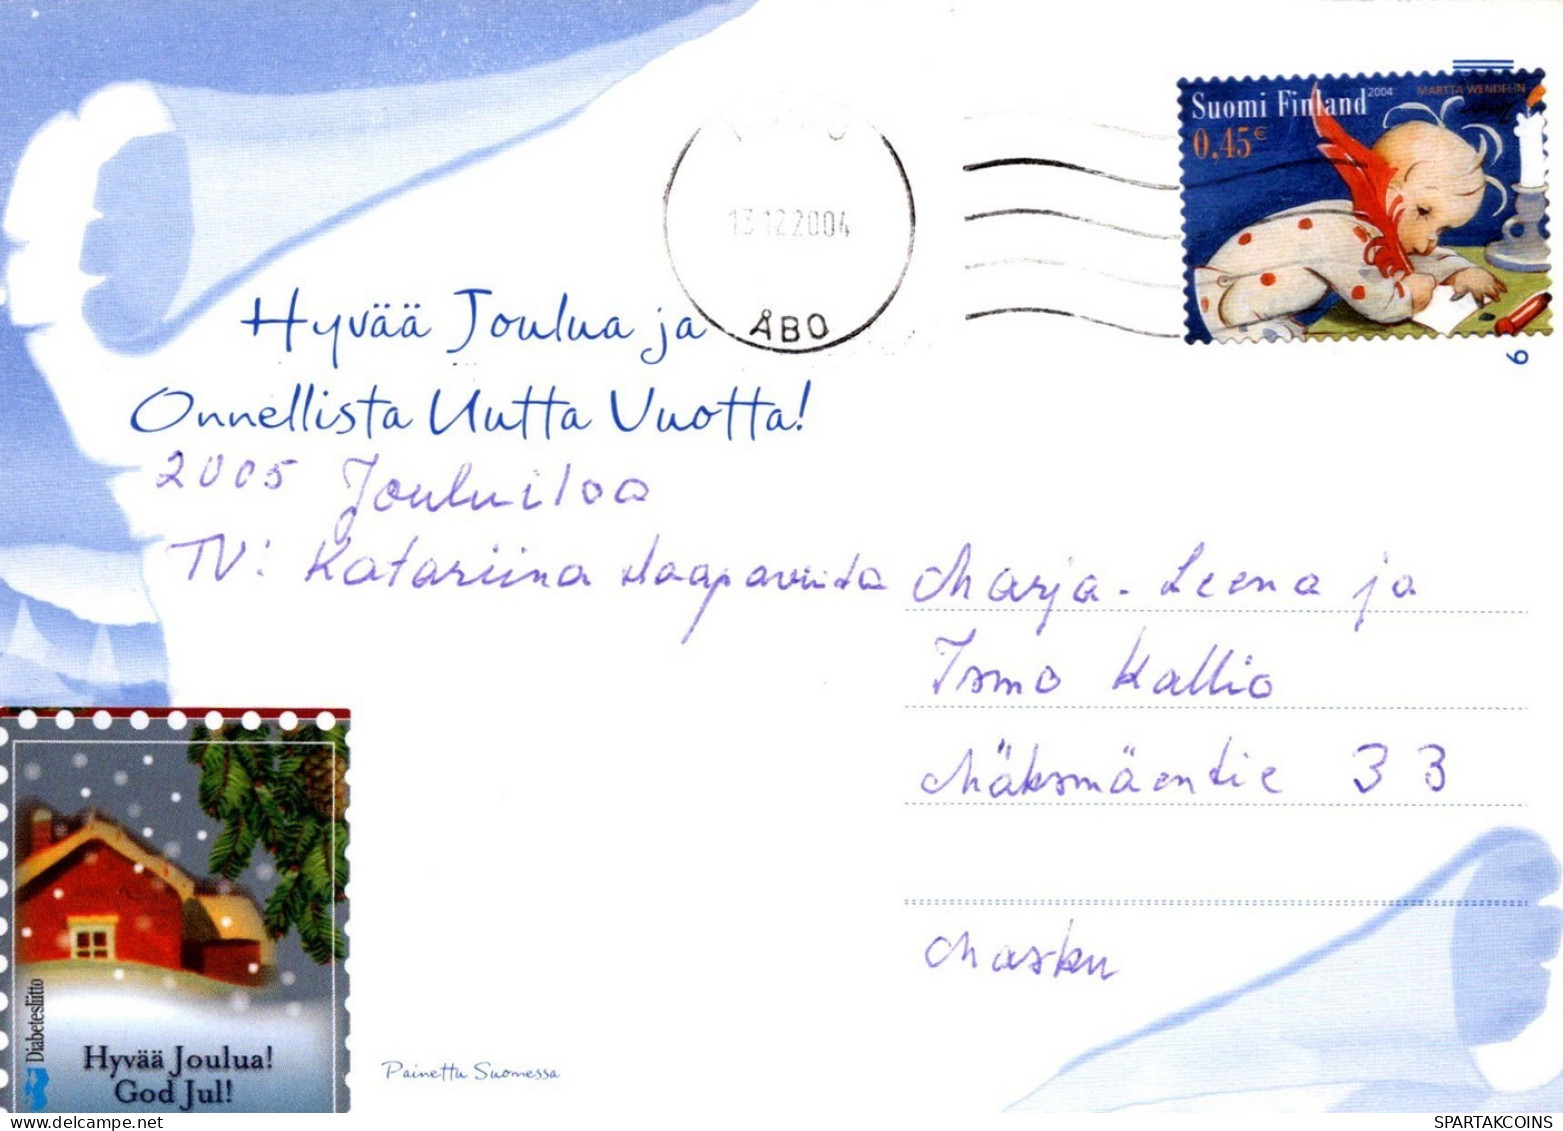 Suomi Finland 2004 MARTTA WENDELIN
0,45€
13.12.2004
ÅBO
Hyvää Joulua ja
Onnellista Uutta Vuotta!
6
2005 Jouluiloa
TV: Katariina Haapavuota
Marja-Leena ja
Ismo Kallio
Mäksmäentie 33
Masku
Diabetesliitto
Hyvää Joulua!
God Jul!
Painettu Suomessa
SPARTAKCOINS